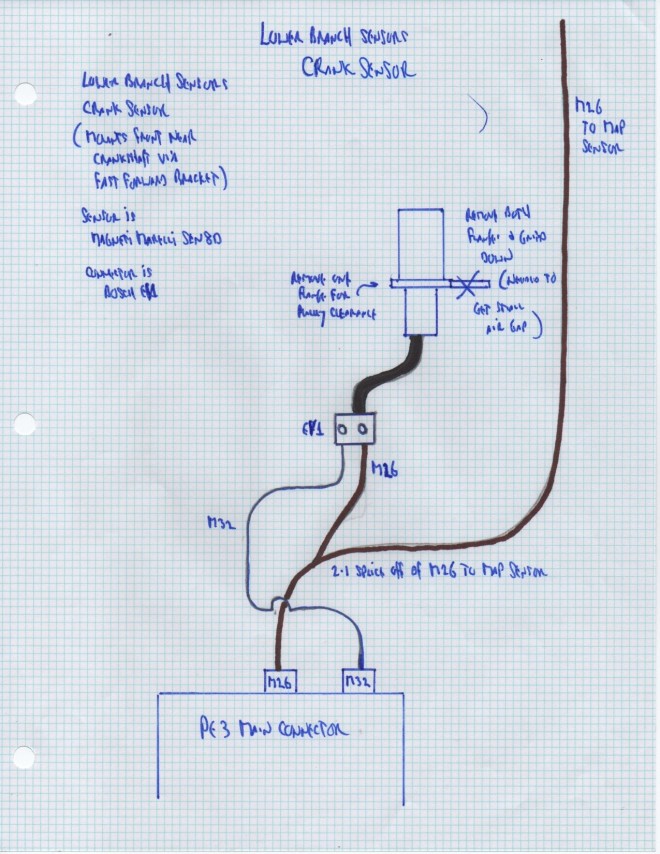 LOWER BRANCH SENSORS
CRANK SENSOR
LOWER BRANCH SENSORS
CRANK SENSOR
(MOUNTS FRONT NEAR
CRANKSHAFT VIA
FAST FORWARD BRACKET)
SENSOR IS
MAGNETI MARELLI SEN8D
CONNECTOR IS
BOSCH EV1
M26
TO MAP
SENSOR
REMOVE BOTH
FLANGES & GRIND
DOWN
(NEEDED TO
GET SMALL
AIR GAP)
REMOVE ONE
FLANGE FOR
PULLEY CLEARANCE
EV1
M26
M32
2-1 SPLICE OFF OF M26 TO MAP SENSOR
M26
M32
PE3 MAIN CONNECTOR